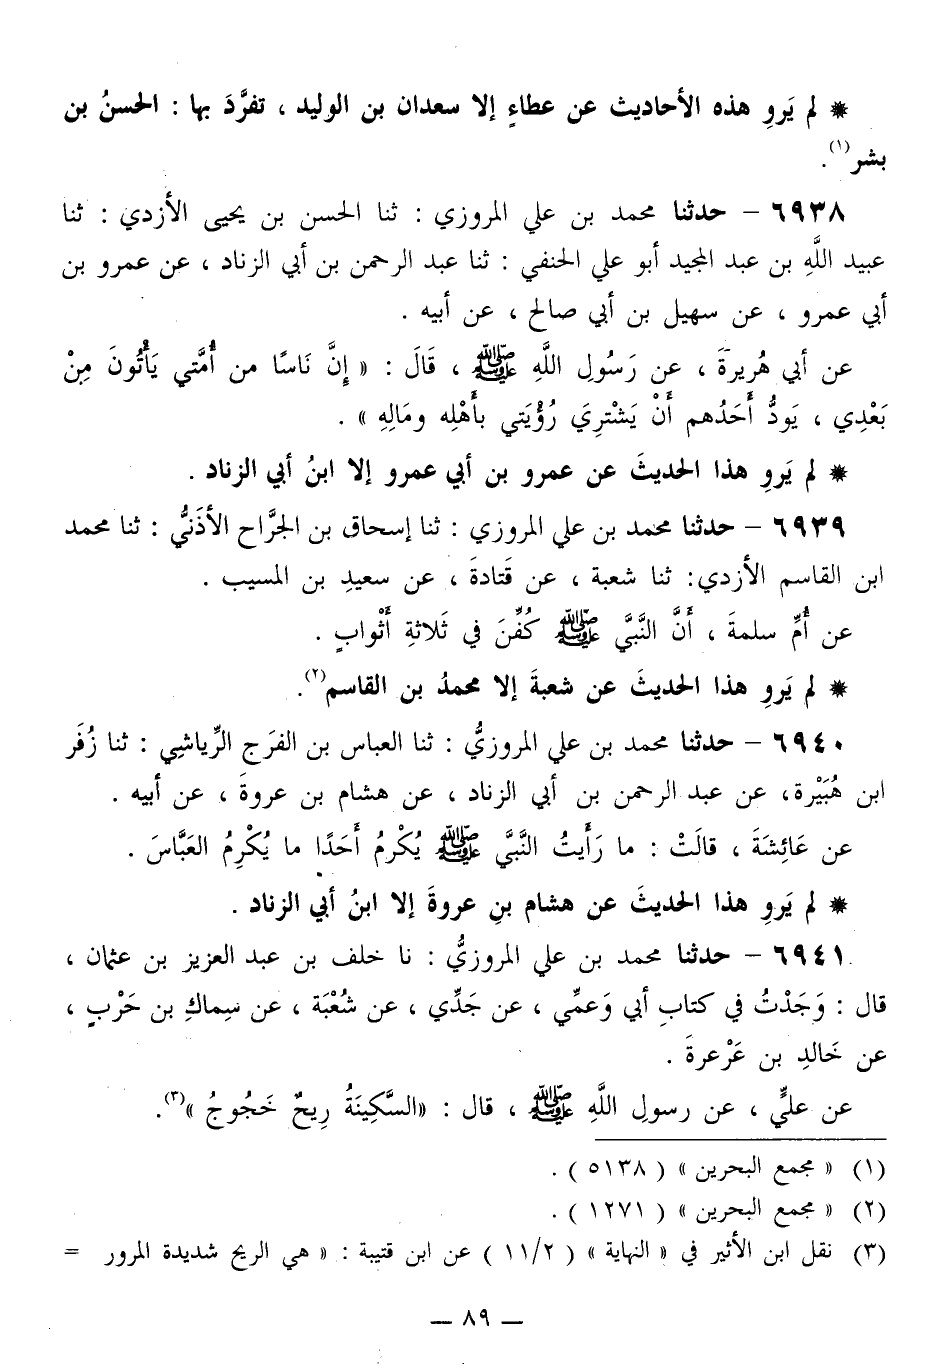 * لم يَروِ هذه الأحاديث عن عطاءٍ إلا سعدان بن الوليد ، تفرَّدَ بها : الحسنُ بن
بشر(١).
٦٩٣٨ – حدثنا محمد بن علي المروزي : ثنا الحسن بن يحيى الأزدي : ثنا
عبيد اللَّهِ بن عبد المجيد أبو علي الحنفي : ثنا عبد الرحمن بن أبي الزناد ، عن عمرو بن
أبي عمرو ، عن سهيل بن أبي صالح ، عن أبيه .
عن أبي هُريرةَ ، عن رَسُولِ اللَّهِ ﷺ ، قَالَ : « إِنَّ نَاسًا من أُمَّتي يَأْتُونَ مِنْ
بَعْدِي ، يَودُّ أَحَدُهم أَنْ يَشْتَرِيَ رُؤْيَتي بأَهْلِه ومَالِهِ » .
* لم يَروِ هذا الحديثَ عن عمرو بن أبي عمرو إلا ابنُ أبي الزناد .
٦٩٣٩ – حدثنا محمد بن علي المروزي : ثنا إسحاق بن الجرَّاح الأذَنيُّ : ثنا محمد
ابن القاسم الأزدي: ثنا شعبة ، عن قَتادةَ ، عن سعيدِ بن المسيب .
عن أُمِّ سلمةَ ، أَنَّ النَّبيَّ ﷺ كُفِّنَ في ثَلاثةِ أَثْوابٍ .
* لم يَروِ هذا الحديثَ عن شعبةَ إلا محمدُ بن القاسم(٢).
٦٩٤٠ – حدثنا محمد بن علي المروزيُّ : ثنا العباس بن الفرَج الرِّياشِي : ثنا زُفَر
ابن هُبَيْرة، عن عبد الرحمن بن أبي الزناد ، عن هشام بن عروةَ ، عن أبيه .
عن عَائِشَةَ ، قالَتْ : ما رَأَيتُ النَّبيَّ ﷺ يُكْرمُ أَحَدًا ما يُكْرِمُ العَبَّاسَ .
* لم يَروِ هذا الحديثَ عن هشام بنِ عروةَ إلا ابنُ أبي الزناد .
٦٩٤١ – حدثنا محمد بن علي المروزيُّ : نا خلف بن عبد العزيز بن عثمان ،
قال : وَجَدْتُ في كتابِ أبي وَعمِّي ، عن جَدِّي ، عن شُعْبَة ، عن سِماكِ بن حَرْبٍ ،
عن خَالدِ بن عَرْعرةَ .
عن عليٍّ ، عن رسولِ اللَّهِ ﷺ ، قال : «السَّكِينَةُ رِيحٌ خَجُوجُ »(٣).
(١) « مجمع البحرين » ( ٥١٣٨ ) .
(٢) « مجمع البحرين » ( ١٢٧١ ) .
(٣) نقل ابن الأثير في « النهاية » ( ١١/٢ ) عن ابن قتيبة : « هي الريح شديدة المرور =
— ٨٩ —